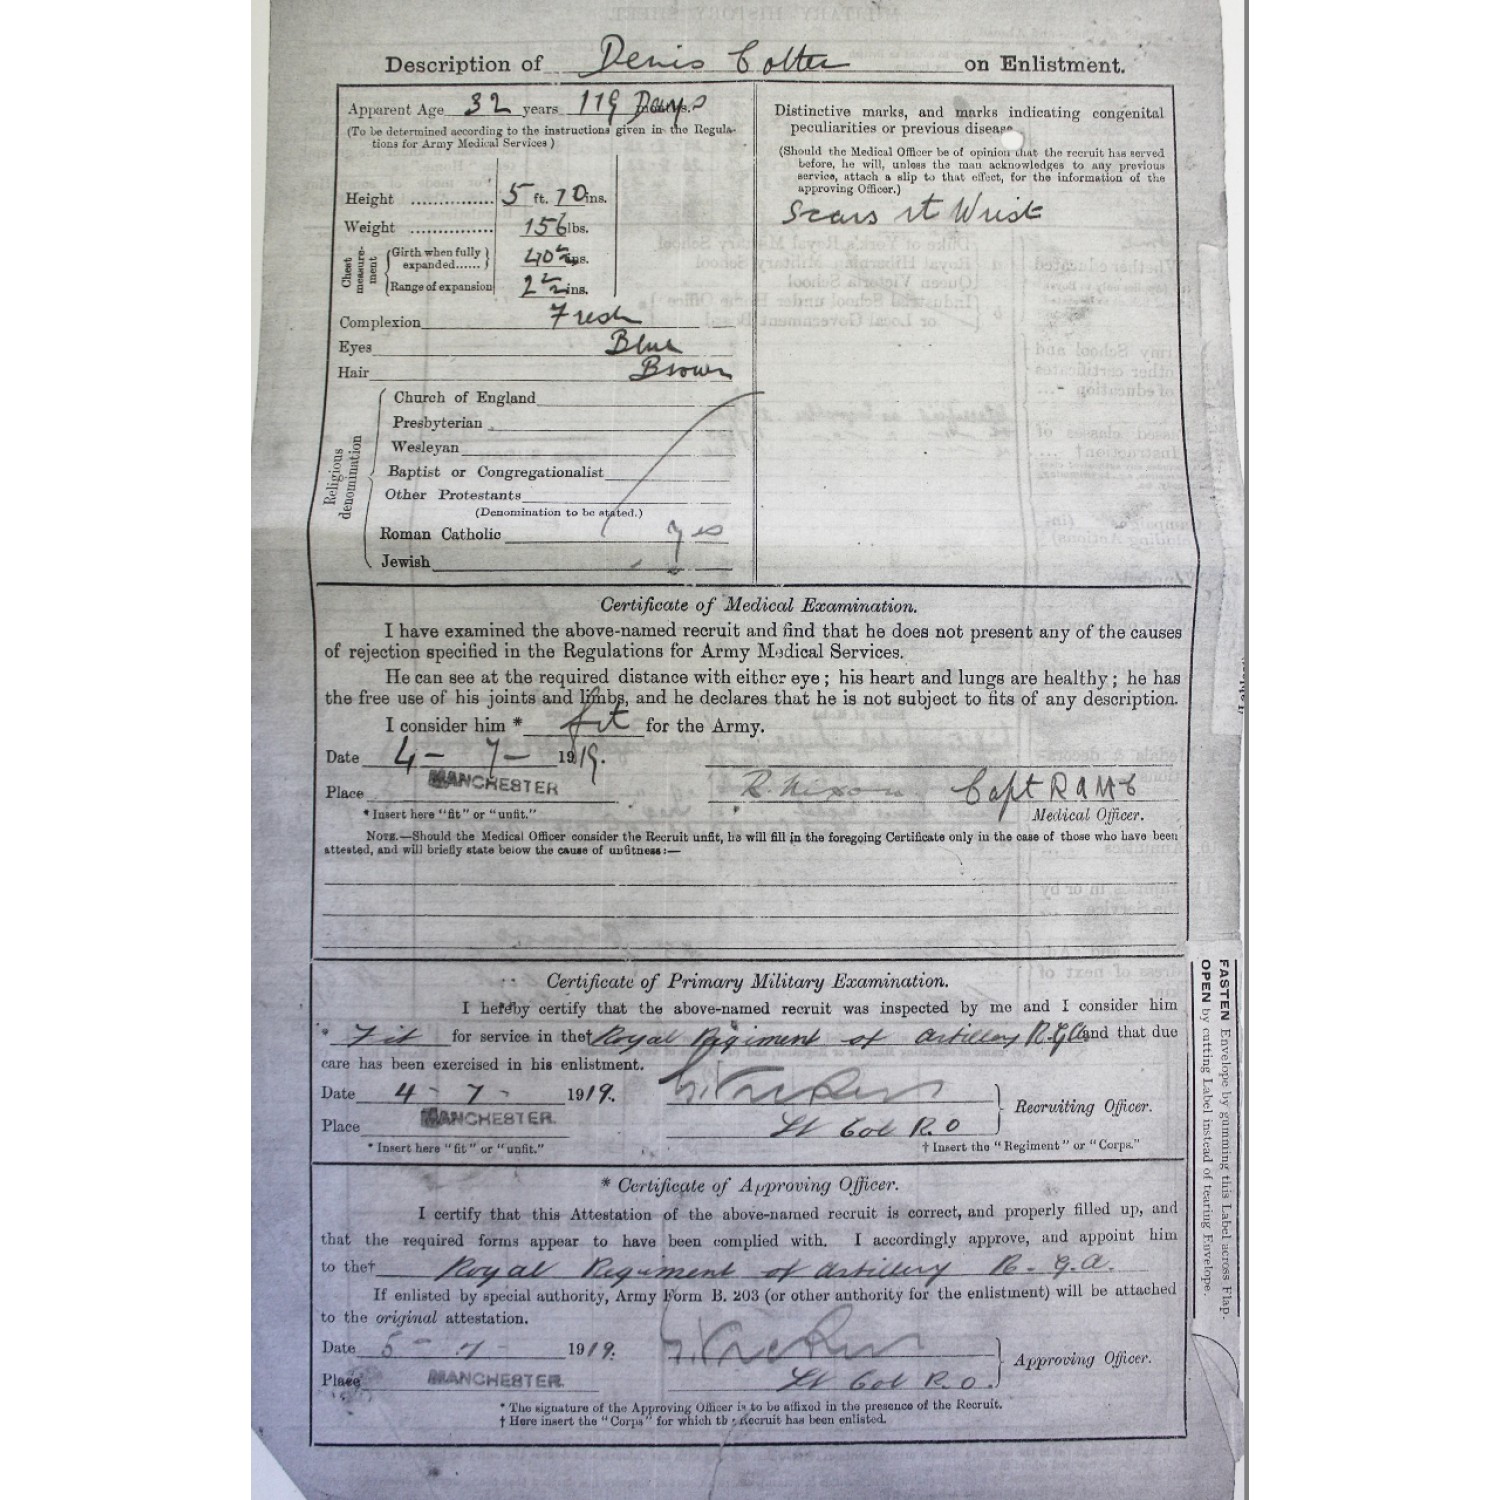 Description of Denis Colter on Enlistment.
Apparent Age 32 years 119 Days
(To be determined according to the instructions given in the Regula-
tions for Army Medical Services)
Height 5 ft. 10 ins.
Weight 156 lbs.
Chest measure-ment
Girth when fully
expanded...... 40½ ins.
Range of expansion 2½ ins.
Complexion Fresh
Eyes Blue
Hair Brown
Religious denomination
Church of England
Presbyterian
Wesleyan
Baptist or Congregationalist
Other Protestants
(Denomination to be stated.)
Roman Catholic yes
Jewish
Distinctive marks, and marks indicating congenital
peculiarities or previous disease
(Should the Medical Officer be of opinion that the recruit has served
before, he will, unless the man acknowledges to any previous
service, attach a slip to that effect, for the information of the
approving Officer.)
Scars rt Wrist
Certificate of Medical Examination.
I have examined the above-named recruit and find that he does not present any of the causes
of rejection specified in the Regulations for Army Medical Services.
He can see at the required distance with either eye; his heart and lungs are healthy; he has
the free use of his joints and limbs, and he declares that he is not subject to fits of any description.
I consider him * fit for the Army.
Date 4 - 7 - 1919.
Place MANCHESTER
R. Nixon Capt RAMC
Medical Officer.
* Insert here "fit" or "unfit."
NOTE.—Should the Medical Officer consider the Recruit unfit, he will fill in the foregoing Certificate only in the case of those who have been
attested, and will briefly state below the cause of unfitness:—
Certificate of Primary Military Examination.
I hereby certify that the above-named recruit was inspected by me and I consider him
* Fit for service in the† Royal Regiment of Artillery R.G.A. and that due
care has been exercised in his enlistment.
Date 4 - 7 - 1919.
Place MANCHESTER.
Lt Col R.O
Recruiting Officer.
* Insert here "fit" or "unfit."
† Insert the "Regiment" or "Corps."
* Certificate of Approving Officer.
I certify that this Attestation of the above-named recruit is correct, and properly filled up, and
that the required forms appear to have been complied with. I accordingly approve, and appoint him
to the† Royal Regiment of Artillery R.G.A.
If enlisted by special authority, Army Form B. 203 (or other authority for the enlistment) will be attached
to the original attestation.
Date 5 - 7 - 1919.
Place MANCHESTER.
Lt Col R.O.
Approving Officer.
* The signature of the Approving Officer is to be affixed in the presence of the Recruit.
† Here insert the "Corps" for which the Recruit has been enlisted.
FASTEN Envelope by gumming this Label across Flap.
OPEN by cutting Label instead of tearing Envelope.